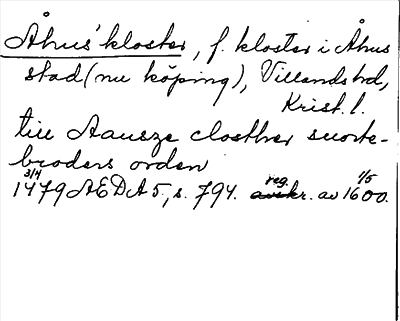 Åhus' kloster, f. kloster i Åhus
stad (nu köping), Villands hd,
Krist. l.
till Aausze closther suorte-
brøders orden
1479 3/4 ÆDA 5, s. 794. reg. av 1600. 1/5